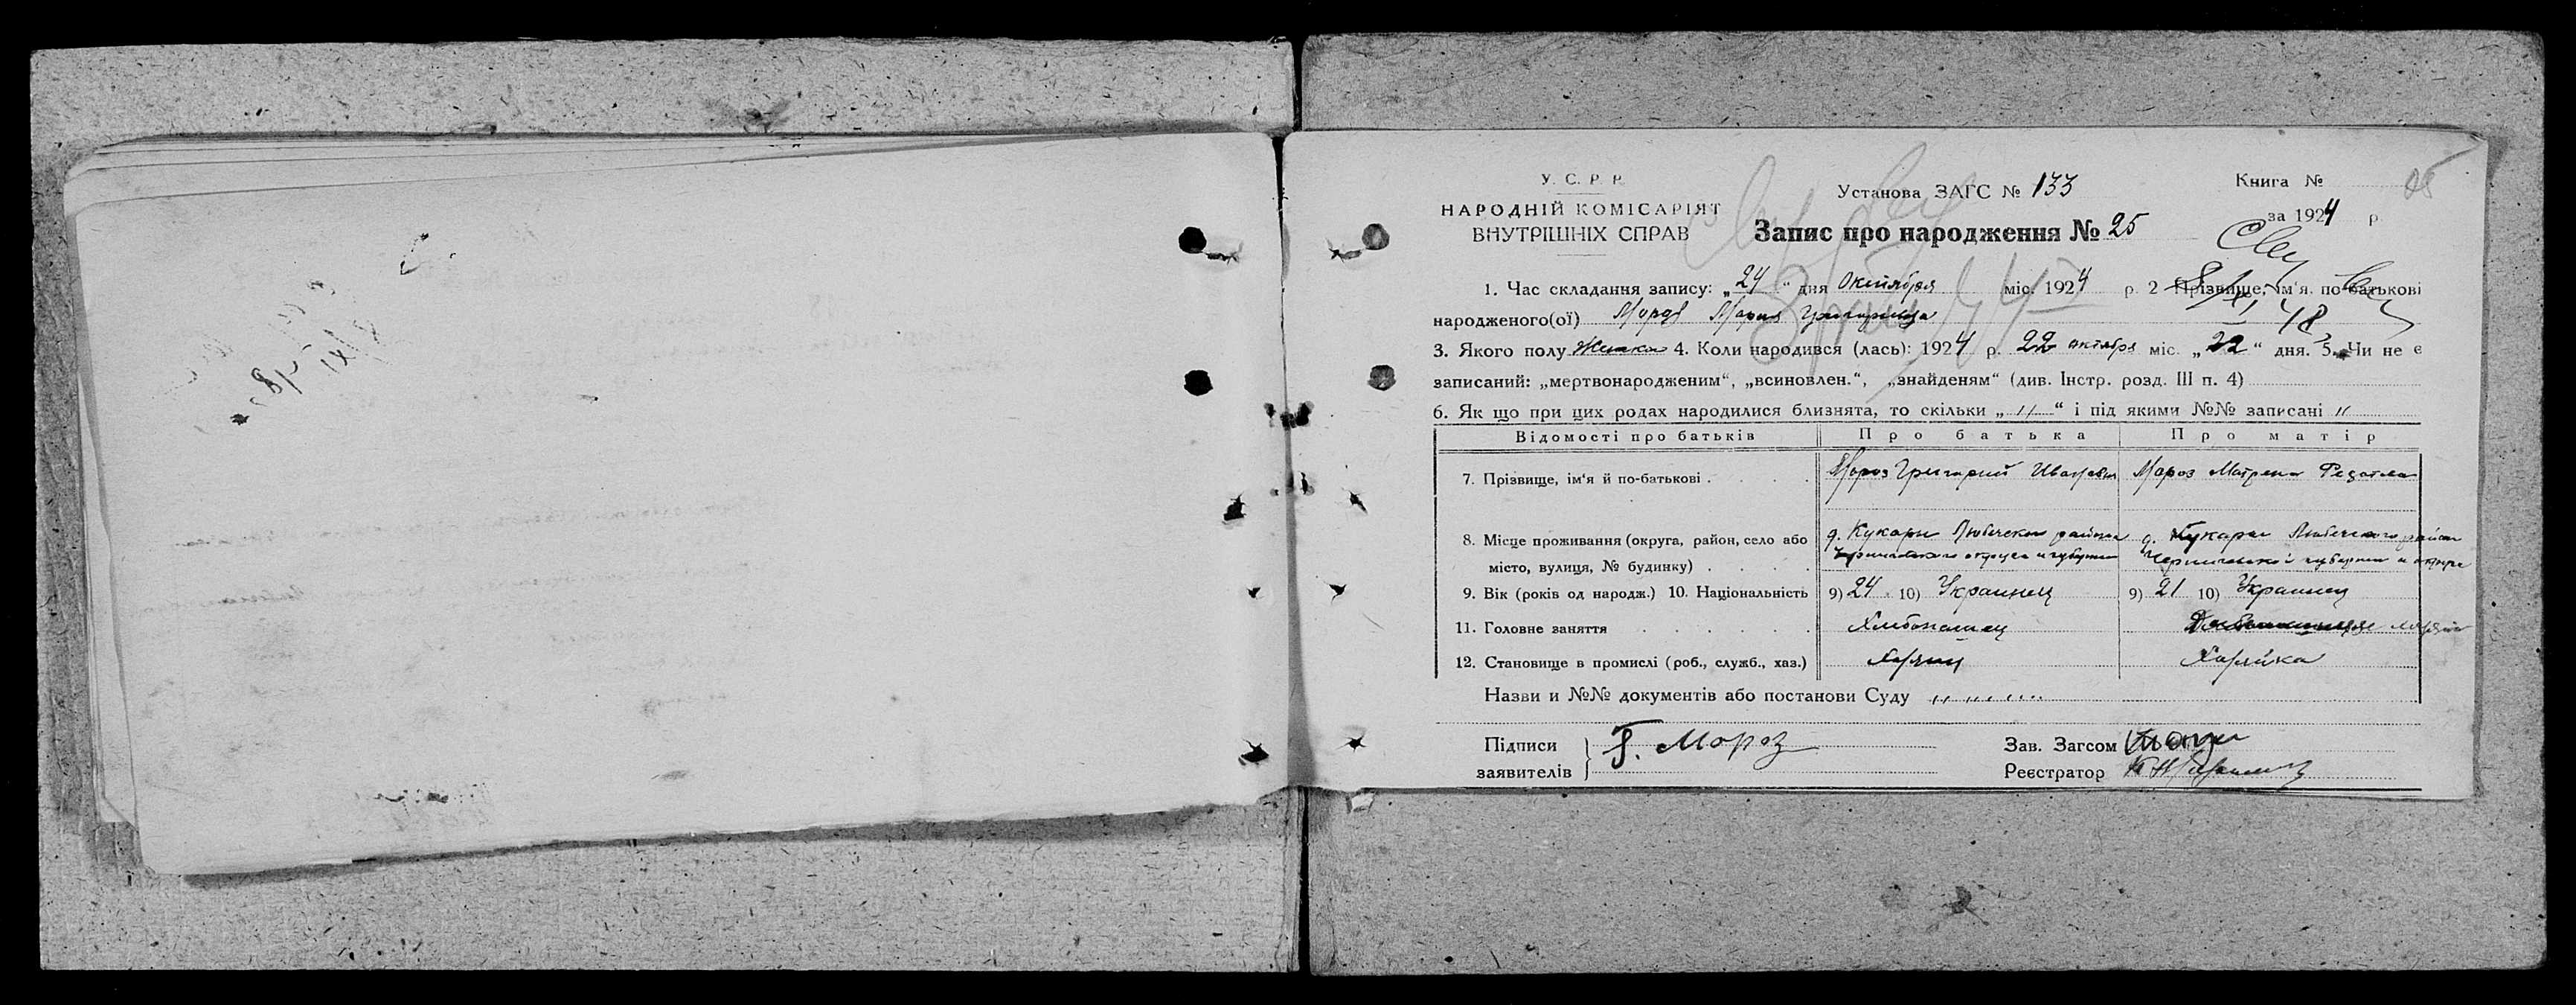 У. С. Р. Р.
НАРОДНІЙ КОМІСАРІЯТ
ВНУТРІШНІХ СПРАВ
Установа ЗАГС № 133
Книга №
за 1924 р.
Запис про народження № 25
1. Час складання запису: „24“ дня Октября міс. 1924 р. 2 Прізвище, ім'я, по-батькові
народженого(ої) Мороз Мария Григорьевна
3. Якого полу 4. Коли народився (лась): 1924 р. 22 октября міс. „22“ дня. 5. Чи не є
записаний: „мертвонародженим“, „всиновлен.“, „знайденям“ (див. Інстр. розд. III п. 4)
6. Як що при цих родах народилися близнята, то скільки „ 〃 “ і під якими №№ записані 〃
Відомості про батьків Про батька Про матір
7. Прізвище, ім'я й по-батькові . . . . Мороз Григорий Иванович Мороз Матрена
8. Місце проживання (округа, район, село або д. Кукари Любечского района д. Кукари Любечского района
місто, вулиця, № будинку) . . . . Черниговского округа и губернии Черниговской губернии и округа
9. Вік (років од народж.) 10. Національність 9) 24 10) Украинец 9) 21 10) Украинец
11. Головне заняття . . . . . . Хлебопашец
12. Становище в промислі (роб., служб., хаз.) Хазяин Хазяйка
Назви и №№ документів або постанови Суду 〃 〃 〃
Підписи
заявителів
Г. Мороз
Зав. Загсом
Реєстратор
8/XI 48